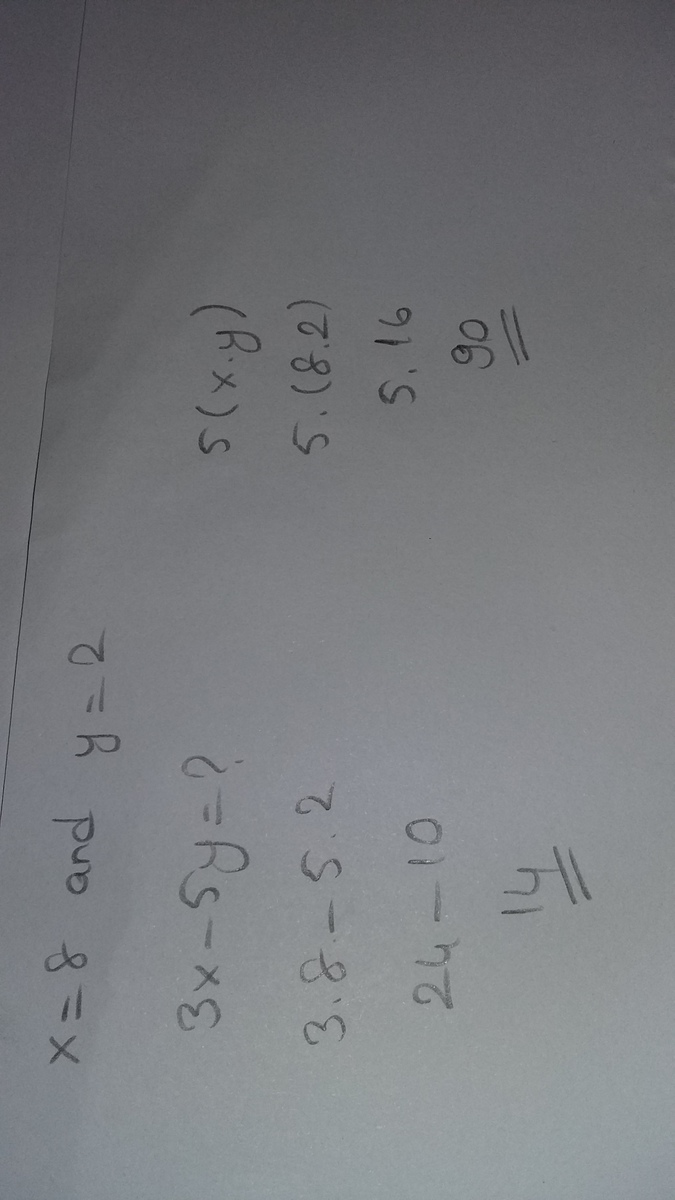 x = 8 and y = 2
3x - 5y = ?
3.8 - 5.2
24 - 10
14
5(x.y)
5.(8.2)
5.16
90